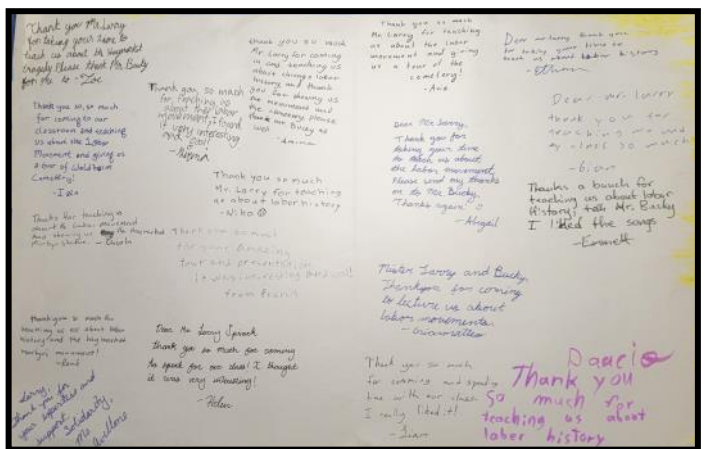 Thank you Mr. Larry
for taking your time to
teach us about the Haymarket
tragedy. Please thank Mr. Bucky
for me to -Zoe
Thank you so, so much
for coming to our
classroom and teaching
us about the Labor
Movment and giving us
a tour of Waldheim
Cemetery!
Thanks for teaching us
about the labor movement
And showing us the Haymarket
Martyrs
Thank you so much for
teaching us all about labor
history and the haymarket
martyrs monument!
Larry,
Thank you for
your expertise and
support.
Solidarity,
Ms.
thank you so much
Mr Larry for coming
in and teaching us
about chicago labor
history and thank
you for showing us
the monument and
the cemetery, please
Mr Bucky as
well
-Amina
Thank you so much
for teaching us
about the labor
movement, I found
it very interesting
and cool!
Thank you so much
Mr. Larry for teaching
us about labor history
-Niko
Thank you so much
for your Amazing
tour and presentation
it was interesting and cool!
from
Dear Mr Larry Spivack
thank you so much for coming
to speak for our class! I thought
it was very interesting!
-Helen
Thank you so much
Mr Larry for teaching
us about the labor
movement and giving
us a tour of the
cemetery!
Dear Mr. Larry,
Thank you for
taking your time
to teach us about
the labor movement,
Please send my thanks
on to Mr Bucky.
Thanks again!
-Abigail
Mister Larry and Bucky,
Thankyou for coming
to lecture us about
labor movements.
Thank you so much
for coming and spending
time with our class
I really liked it!
-Liam
Dear mr larry thank you
for taking your time to
teach us about labor history
-Ethan
Dear mr. larry
thank you for
teaching me and
my class so much
Thanks a bunch for
teaching us about labor
History, tell Mr. Bucky
I liked the songs
-Emmett
Thank you
so much for
teaching us about
laber history